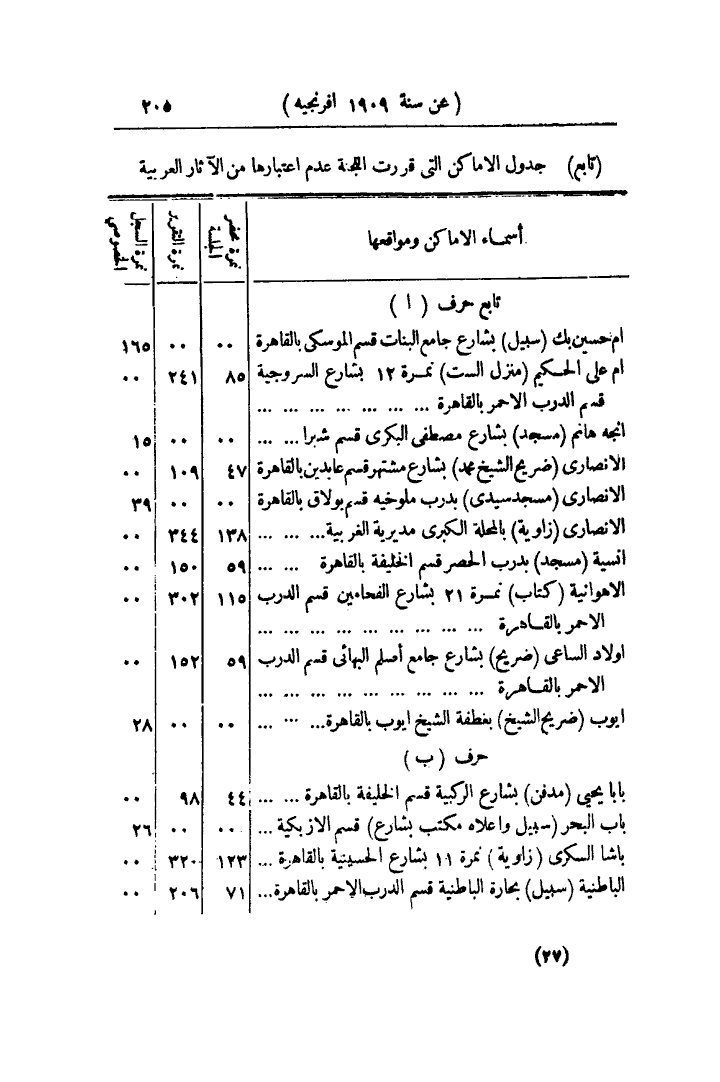 (عن سنة ١٩٠٩ افرنجيه) ٢٠٥
(تابع) جدول الاماكن التى قررت اللجنة عدم اعتبارها من الآثار العربية
أسماء الاماكن ومواقعها نمرة محضر الجلسة نمرة التقرير نمرة السجل الخصوصي
تابع حرف (ا)
ام حسين بك (سبيل) بشارع جامع البنات قسم الموسكى بالقاهرة ٠٠ ٠٠ ١٦٥
ام على الحكيم (منزل الست) نمرة ١٢ بشارع السروجية ٨٥ ٢٤١ ٠٠
قسم الدرب الاحمر بالقاهرة ... ... ... ... ... ... ...
انجه هانم (مسجد) بشارع مصطفى البكرى قسم شبرا ... ... ٠٠ ٠٠ ١٥
الانصارى (ضريح الشيخ محمد) بشارع مشتهر قسم عابدين بالقاهرة ٤٧ ١٠٩ ٠٠
الانصارى (مسجد سيدى) بدرب ملوخيه قسم بولاق بالقاهرة ٠٠ ٠٠ ٣٩
الانصارى (زاوية) بالمحلة الكبرى مديرية الغربية ... ... ... ١٣٨ ٣٤٤ ٠٠
انسية (مسجد) بدرب الحصر قسم الخليفة بالقاهرة ... ... ٥٩ ١٥٠ ٠٠
الاهوانية (كتاب) نمرة ٢١ بشارع الفحامين قسم الدرب ١١٥ ٣٠٢ ٠٠
الاحمر بالقاهرة ... ... ... ... ... ... ... ... ...
اولاد الساعى (ضريح) بشارع جامع أصلم البهائى قسم الدرب ٥٩ ١٥٢ ٠٠
الاحمر بالقاهرة ... ... ... ... ... ... ... ... ...
ايوب (ضريح الشيخ) بعطفة الشيخ ايوب بالقاهرة ... ... ... ٠٠ ٠٠ ٢٨
حرف (ب)
بابا يحيى (مدفن) بشارع الركبية قسم الخليفة بالقاهرة ... ... ٤٤ ٩٨ ٠٠
باب البحر (سبيل واعلاه مكتب بشارع) قسم الازبكية ... ٠٠ ٠٠ ٢٦
باشا السكرى (زاوية) نمرة ١١ بشارع الحسينية بالقاهرة ... ١٢٣ ٣٢٠ ٠٠
الباطنية (سبيل) بحارة الباطنية قسم الدرب الاحمر بالقاهرة ... ٧١ ٢٠٦ ٠٠
(٢٧)